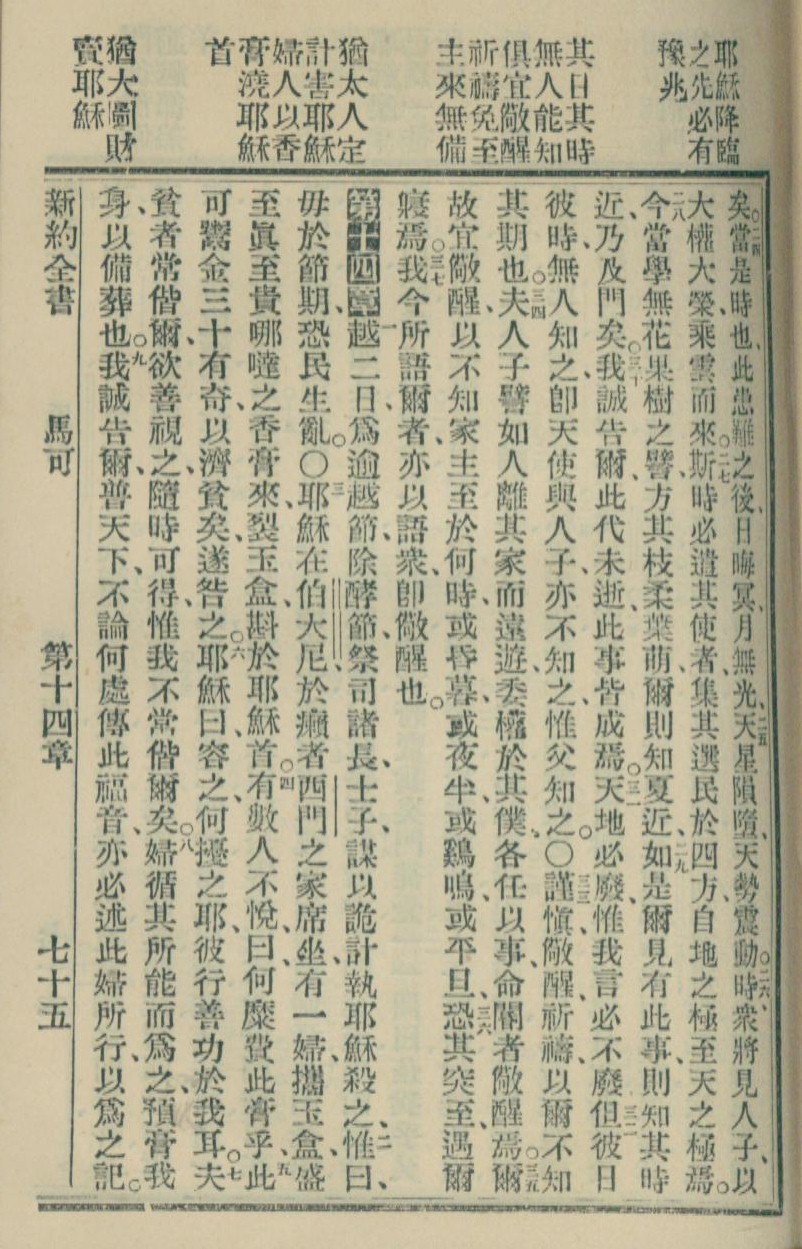 耶穌降臨
之先必有
豫兆
其日其時
無人能知
俱宜儆醒
祈禱免至
主來無備
猶太人定
計害耶穌
婦人以香
膏澆耶穌
首
猶大圖財
賣耶穌
矣。二四當是時也、此患難之後、日晦冥、月無光、二五天星隕墮、天勢震動。二六時衆將見人子、以
大權大榮乘雲而來。二七斯時必遣其使者、集其選民於四方、自地之極至天之極焉。
二八今當學無花果樹之譬、方其枝柔葉萌、爾則知夏近、二九如是爾見有此事、則知其時
近、乃及門矣。三十我誠告爾、此代未逝、此事皆成焉。三一天地必廢、惟我言必不廢、三二但彼日
彼時、無人知之、卽天使與人子、亦不知之、惟父知之。〇三三謹愼儆醒、祈禱、以爾不知
其期也。三四夫人子譬如人離其家而遠遊、委權於其僕、各任以事、命閽者儆醒焉。三五爾
故宜儆醒、以不知家主至於何時、或昏暮、或夜半、或鷄鳴、或平旦、三六恐其突至、遇爾
寢焉。三七我今所語爾者、亦以語衆、卽儆醒也。
第十四章一越二日、爲逾越節、除酵節、祭司諸長、士子、謀以詭計執耶穌殺之、二惟曰、
毋於節期、恐民生亂。〇三耶穌在伯大尼、於癩者西門之家席坐、有一婦、攜玉盒、盛
至眞至貴哪噠之香膏來、裂玉盒、斟於耶穌首。四有數人不悅、曰、何糜費此膏乎、五此
可鬻金三十有奇、以濟貧矣、遂咎之。六耶穌曰、容之、何擾之耶、彼行善功於我耳。七夫
貧者常偕爾、欲善視之、隨時可得、惟我不常偕爾矣。八婦循其所能而爲之、預膏我
身、以備葬也。九我誠告爾、普天下、不論何處傳此福音、亦必述此婦所行、以爲之記。
新約全書　馬可　第十四章　七十五